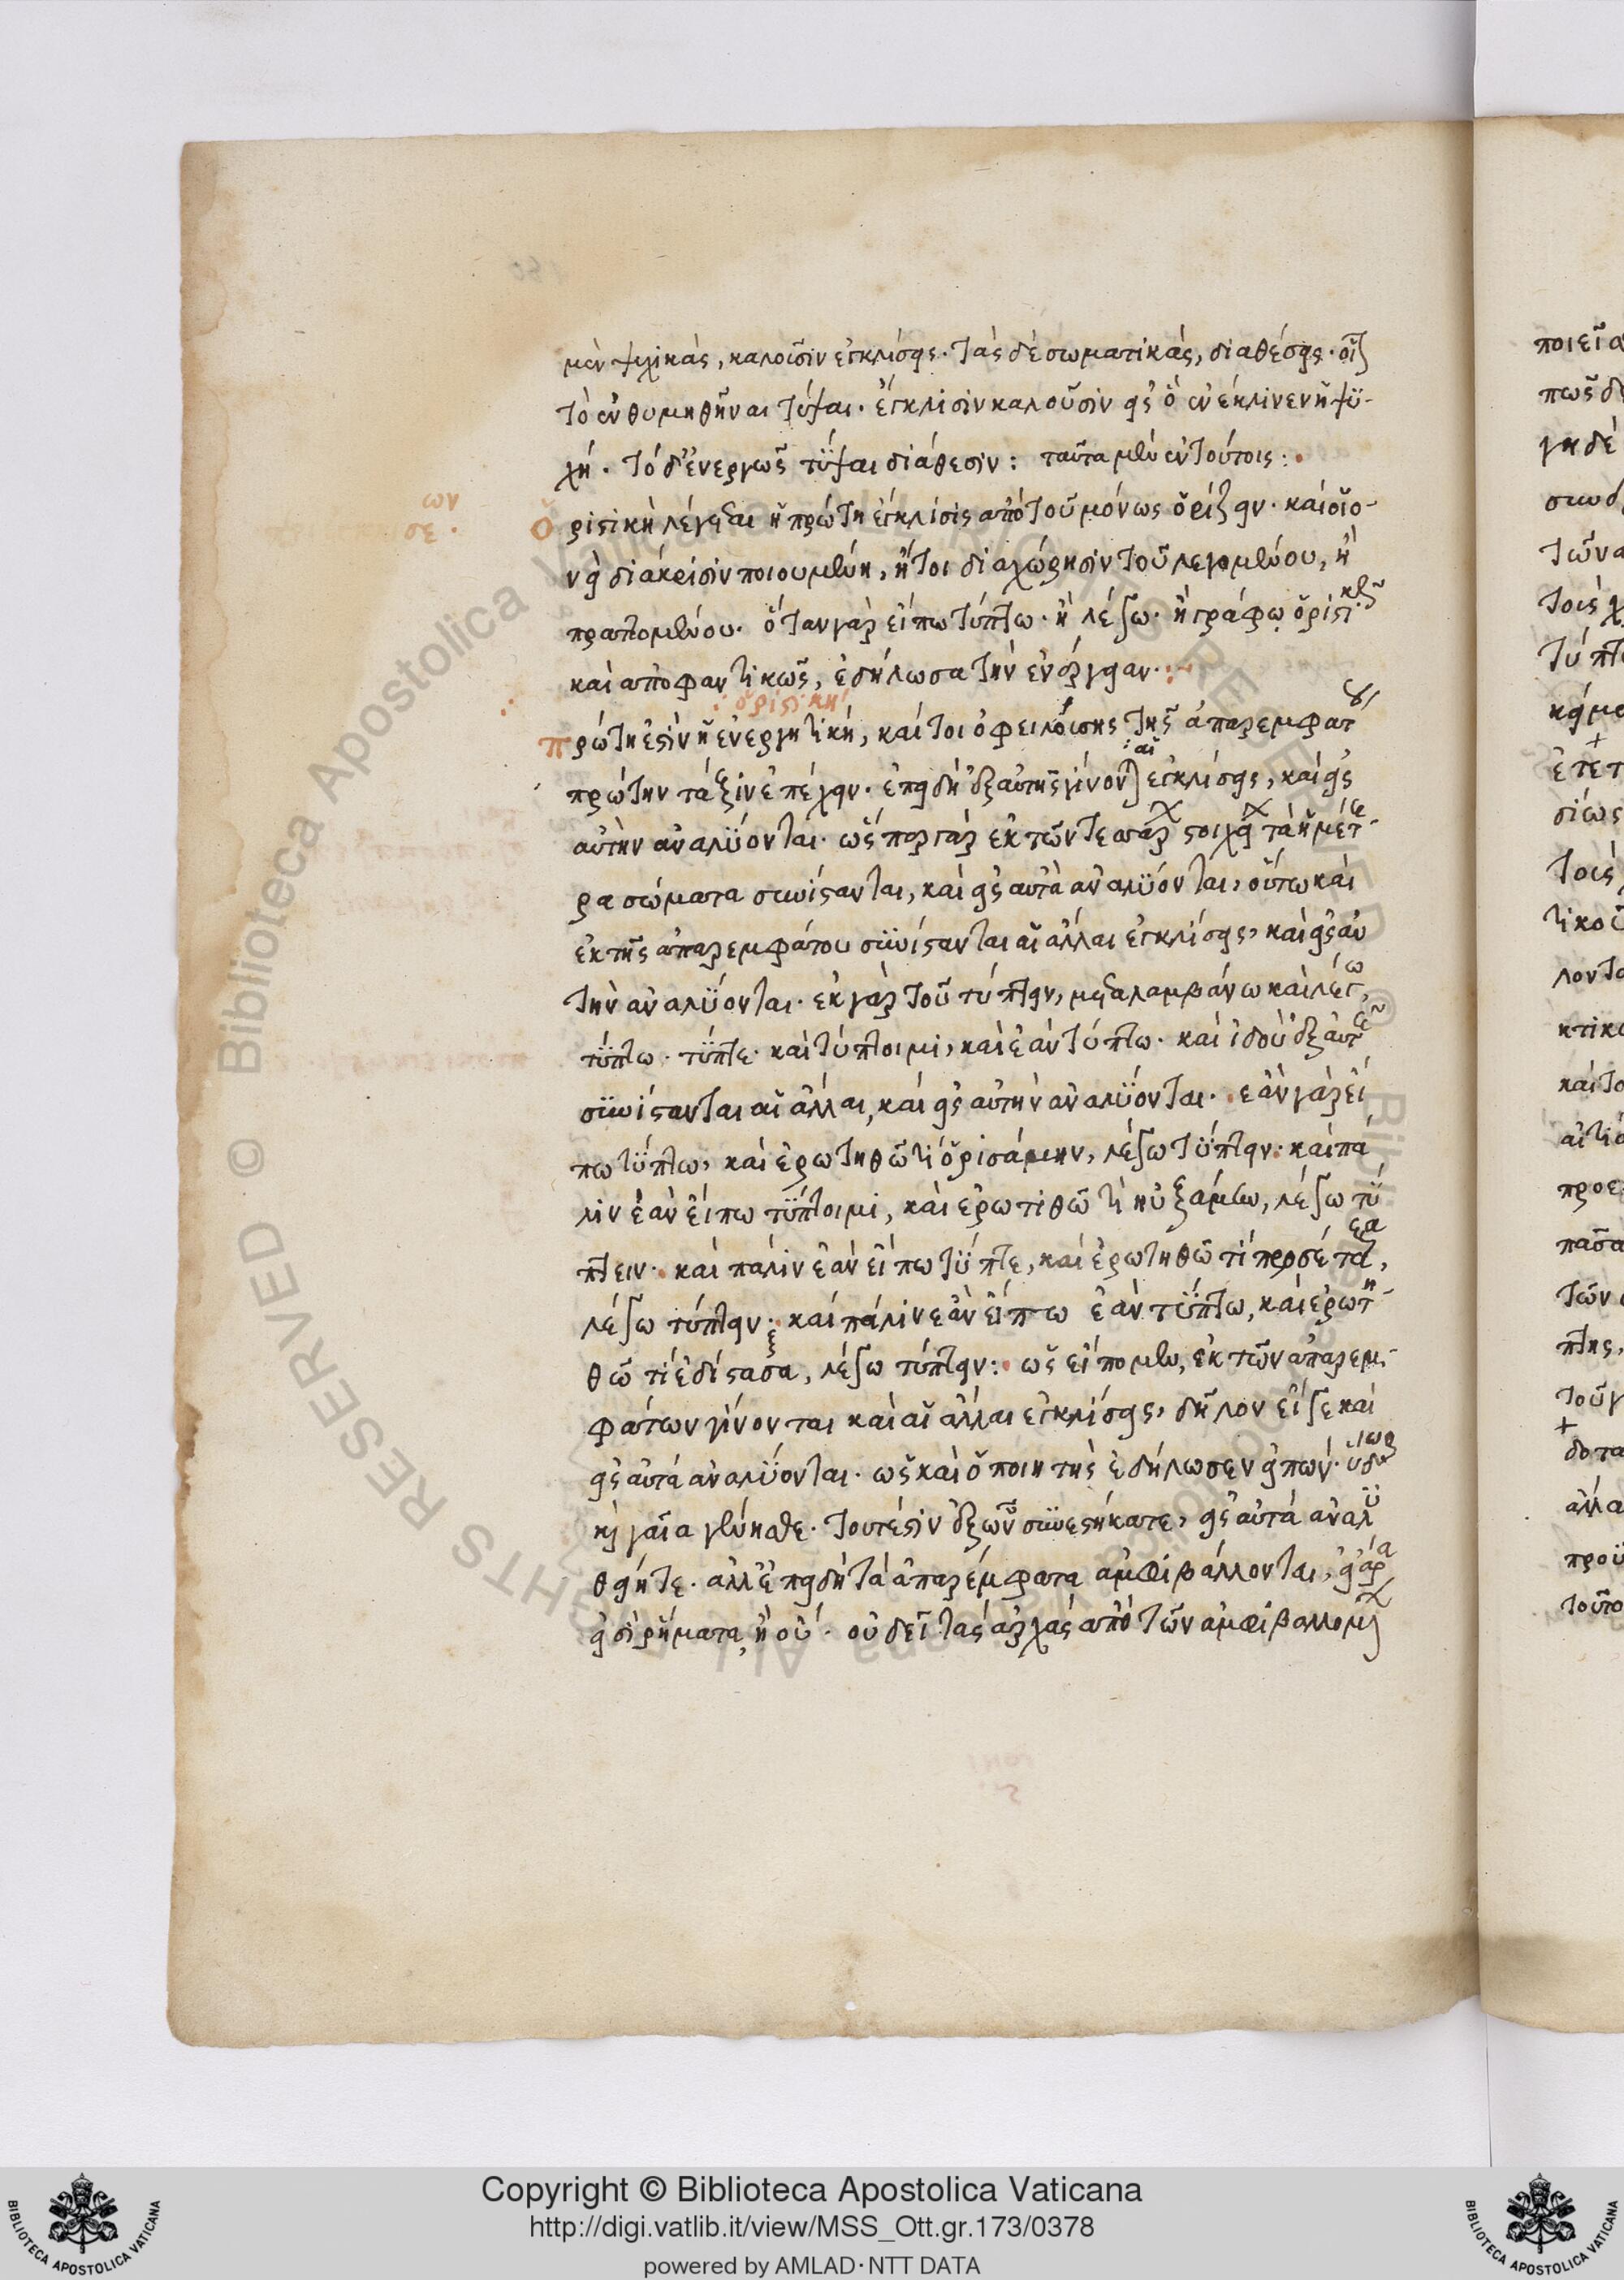 μὲν ψυχικὰς, καλοῦσιν ἐγκλίσεις. τὰς δὲ σωματικὰς, διαθέσεις. οἷον
τὸ ἐνθυμηθῆναι τύψαι. ἔγκλισιν καλοῦσιν εἰς ὃ ἐνέκλινεν ἡ ψυ-
χή. τὸ δ' ἐνεργῶς τύψαι διάθεσιν: ταῦτα μὲν ἐν τούτοις:
ὁριστικὴ λέγεται ἡ πρώτη ἔγκλισις ἀπὸ τοῦ μόνως ὁρίζειν. καὶ οἱο-
νεὶ διάκρισιν ποιουμένη, ἤτοι διαχώρησιν τοῦ λεγομένου, ἢ
πραττομένου. ὅταν γὰρ εἴπω τύπτω. ἢ λέγω. ἢ γράφω ὁριστικῶς
καὶ ἀποφαντικῶς, ἐδήλωσα τὴν ἐνέργειαν:
ὁριστική
πρώτη ἐστὶν ἡ ἐνεργητική, καίτοι ὀφειλούσης τῆς ἀπαρεμφάτου
πρώτην τάξιν ἐπέχειν. ἐπειδὴ ἐξ αὐτῆς γίνονται αἱ ἐγκλίσεις, καὶ εἰς
αὐτὴν ἀναλύονται. ὥσπερ γὰρ ἐκ τῶν τεσσάρων στοιχείων τὰ ἡμέτε-
ρα σώματα συνίστανται, καὶ εἰς αὐτὰ ἀναλύονται, οὕτω καὶ
ἐκ τῆς ἀπαρεμφάτου συνίστανται αἱ ἄλλαι ἐγκλίσεις, καὶ εἰς αὐ
τὴν ἀναλύονται. ἐκ γὰρ τοῦ τύπτειν, μεταλαμβάνω καὶ λέγω,
τύπτω. τύπτε. καὶ τύπτοιμι, καὶ ἐὰν τύπτω. καὶ ἰδοὺ ἐξ αὐτῆς
συνίστανται αἱ ἄλλαι, καὶ εἰς αὐτὴν ἀναλύονται. ἐὰν γὰρ εἴ
πω τύπτω, καὶ ἐρωτηθῶ τί ὁρισάμην, λέγω τύπτειν. καὶ πά
λιν ἐὰν εἴπω τύπτοιμι, καὶ ἐρωτιθῶ τί ηὐξάμην, λέγω τύ
πτειν. καὶ πάλιν ἐὰν εἴπω τύπτε, καὶ ἐρωτηθῶ τί προσέταξα,
λέγω τύπτειν: καὶ πάλιν ἐὰν εἴπω ἐὰν τύπτω, καὶ ἐρωτη-
θῶ τί ἐδίστασα, λέγω τύπτειν: ὡς εἴπομεν, ἐκ τῶν ἀπαρεμ-
φάτων γίνονται καὶ αἱ ἄλλαι ἐγκλίσεις, δῆλον εἴγε καὶ
εἰς αὐτὰ ἀναλύονται. ὡς καὶ ὁ ποιητὴς ἐδήλωσεν εἰπών. ὕδωρ
καὶ γαῖα γένησθε. τουτέστιν ἐξ ὧν συνεστήκατε, εἰς αὐτὰ ἀναλυ
θείητε. ἀλλ' ἐπειδὴ τὰ ἀπαρέμφατα ἀμφιβάλλονται, εἰ ἄρα
εἰσὶ ῥήματα, ἢ οὔ. οὐ δεῖ τὰς ἀρχὰς ἀπὸ τῶν ἀμφιβαλλομένων